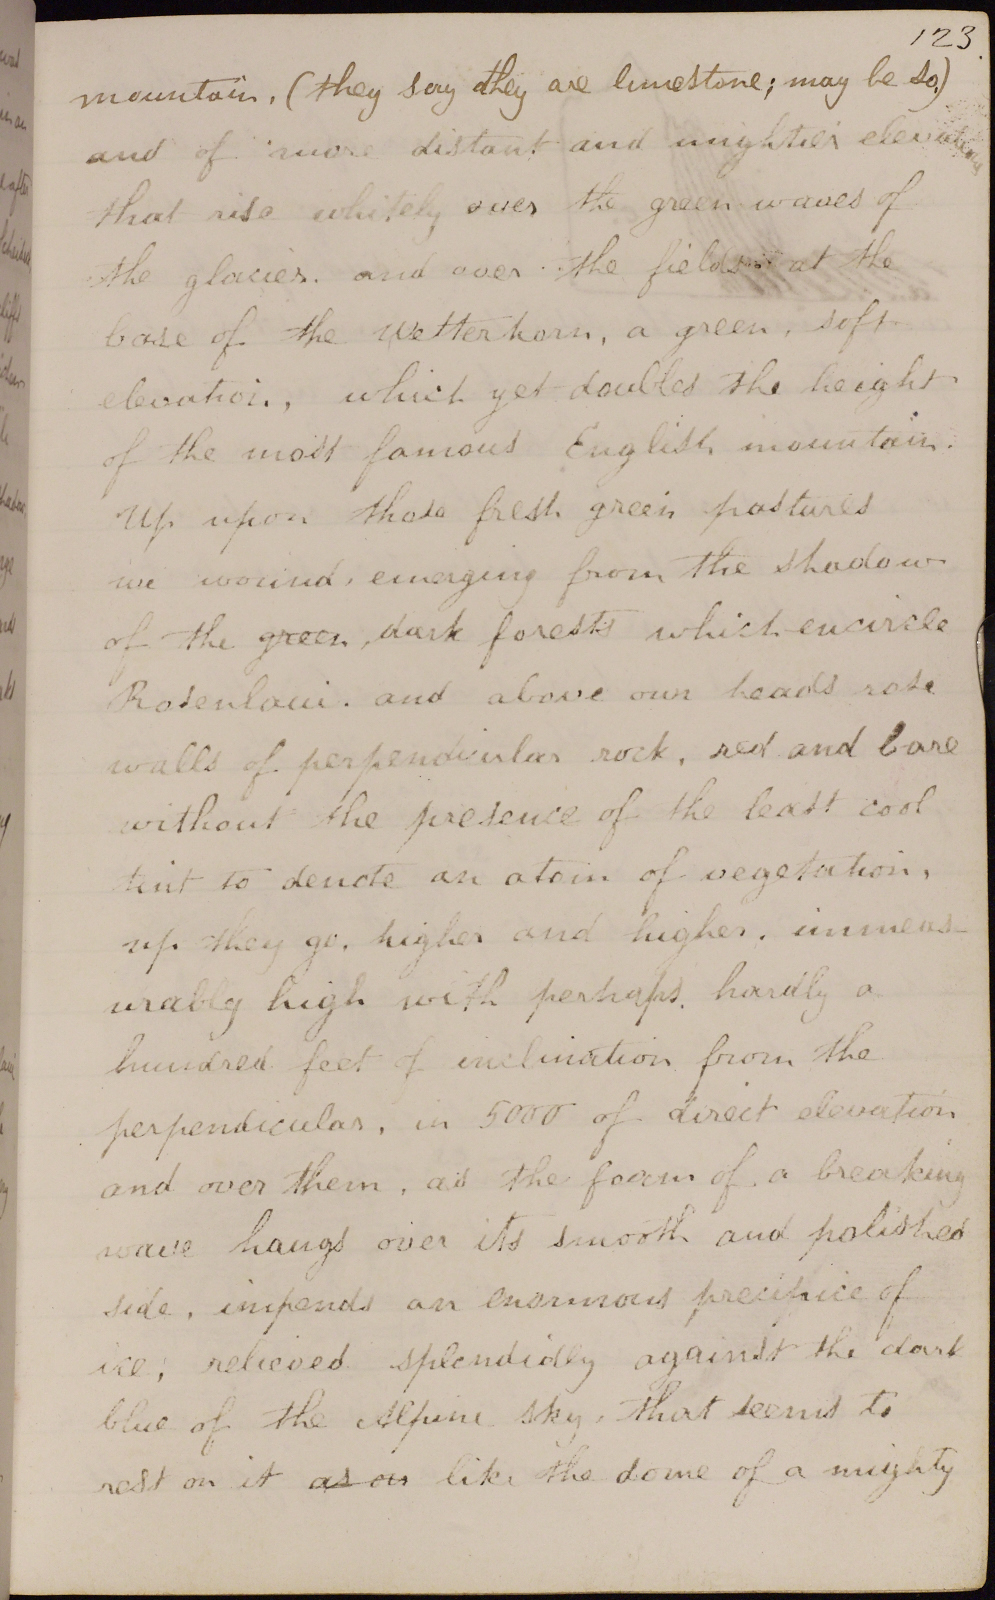 123
mountain. (they say they are limestone; may be so.)
and of more distant and mightier elevations
that rise whitely over the green waves of
the glacier. and over the fields at the
base of the Wetterhorn, a green, soft
elevation, which yet doubles the height
of the most famous English mountain.
Up upon those fresh green pastures
we wound, emerging from the shadow
of the green, dark forests which encircle
Rosenlaui. and above our heads rose
walls of perpendicular rock, red and bare
without the presence of the least cool
tint to denote an atom of vegetation,
up they go, higher and higher, immeas-
urably high with perhaps, hardly a
hundred feet of inclination from the
perpendicular, in 5000 of direct elevation
and over them, as the foam of a breaking
wave hangs over its smooth and polished
side, impends an enormous precipice of
ice; relieved splendidly against the dark
blue of the Alpine sky, that seems to
rest on it as on like the dome of a mighty